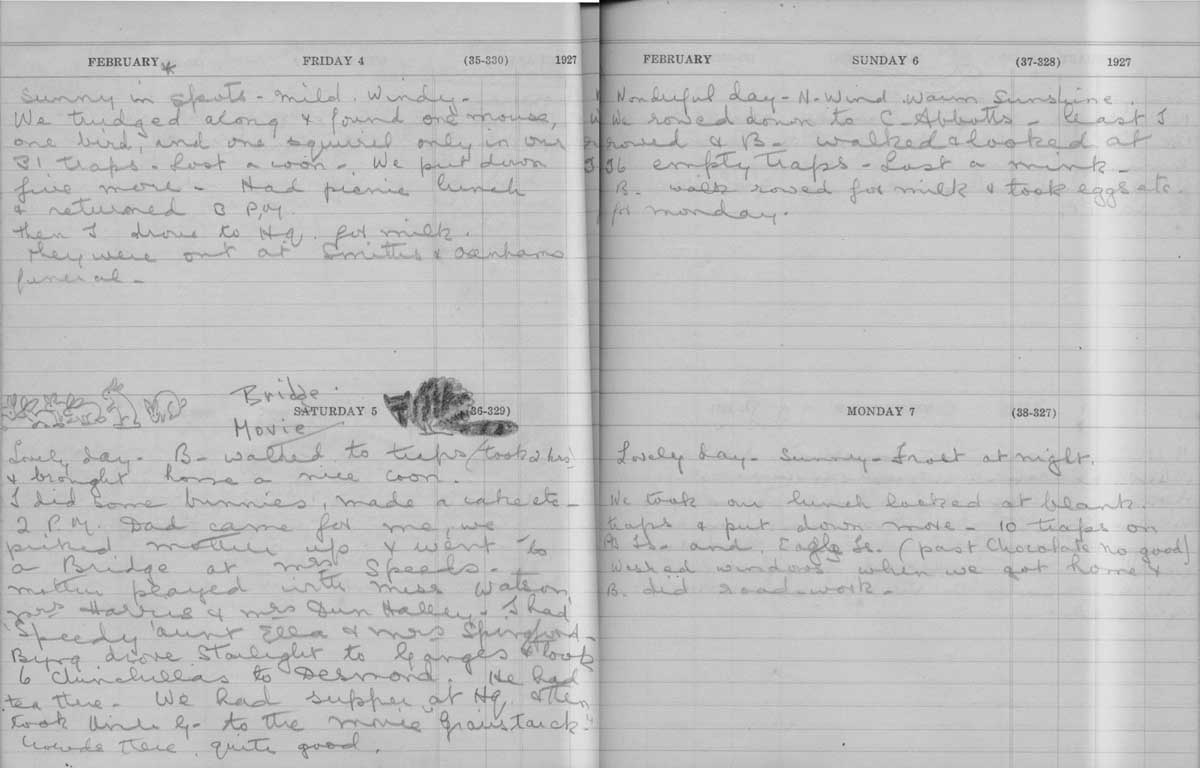 FEBRUARY * FRIDAY 4 (35-330) 1927
Sunny in spots - mild. Windy -
We trudged along & found one mouse,
one bird, and one squirel only in our
31 traps. Lost a coon - We put down
five more - Had picnic lunch
& returned 3 P.M.
then I drove to Hq. for milk.
They were out at Smiths &
funeral -
Bridge.
SATURDAY 5 (36-329)
Movie
Lovely day - B- walked to traps (took 2 hrs)
& brought home a nice coon.
I did some bunnies, made a cake etc -
2 P.M. Dad came for me, we
picked mother up & went to
a Bridge at Mrs Speeds -
mother played with Miss Watson,
Mrs Harris & Mrs Halley - I had
Speedy aunt Ella & Mrs Springford -
Byng drove Starlight to Ganges & took
6 Chinchillas to Desmond. He had
tea there - We had supper at Hq. & then
took Uncle G- to the movie "Graustark"
Crowds there, quite good.
FEBRUARY SUNDAY 6 (37-328) 1927
Wonderful day - N. Wind. Warm Sunshine.
We rowed down to C. Abbotts - least I
rowed & B- walked & looked at
36 empty traps - Lost a mink -
B. walk rowed for milk & took eggs etc.
for monday.
MONDAY 7 (38-327)
Lovely day - Sunney - Frost at night.
We took our lunch looked at blank
traps & put down more - 10 traps on
Is. and Eagle Is. (past Chocolate no good)
Washed windows when we got home &
B. did road-work -